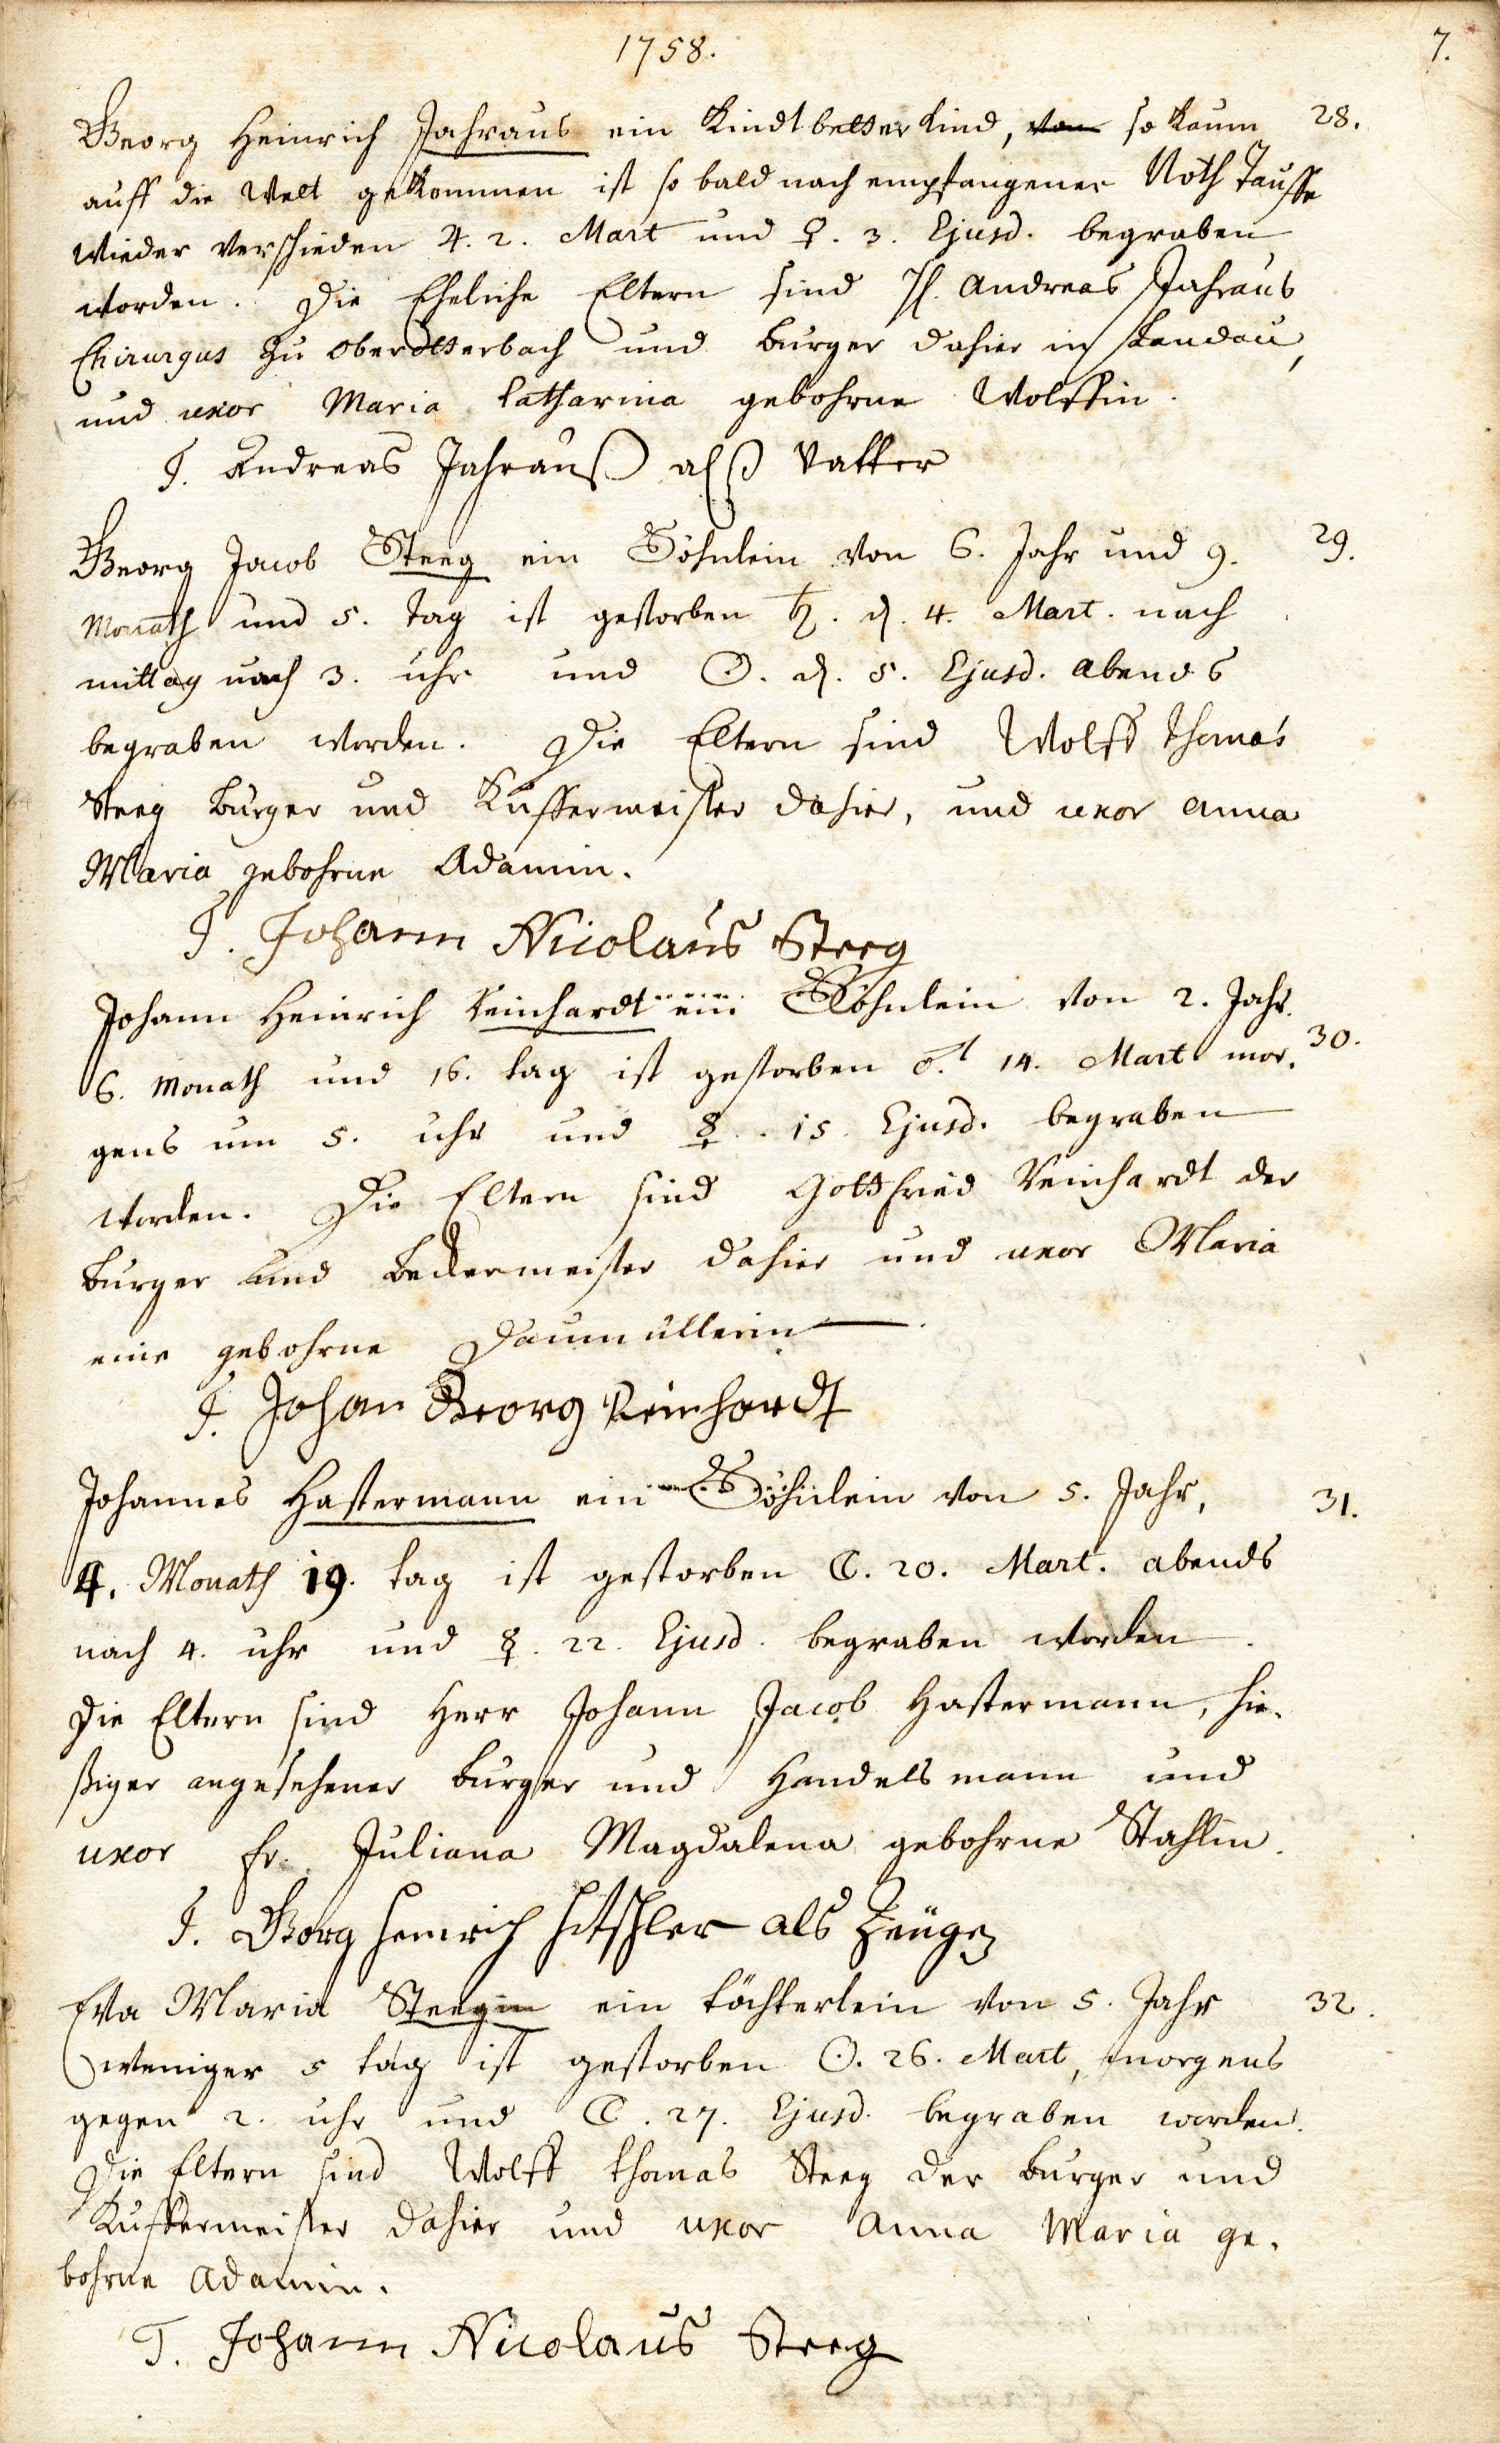 1758.
7.
Georg Heinrich Jahraus ein Kindtbetterkind, von so kaum 28.
auff die Welt gekommen ist so bald nach empfangener Noth Tauffe
wieder verschieden ♃. 2. Mart und ♀. 3. Ejusd. begraben
worden. Die Eheliche Eltern sind H. Andreas Jahraus
Chirurgus zu Oberotterbach und Burger dahier in Landau,
und uxor Maria Catharina gebohrne Wolffin.
T. Andreas Jahrauß alß Vatter
Georg Jacob Steeg ein Söhnlein von 6. Jahr und 9. 29.
Monath und 5. tag ist gestorben ♄. d. 4. Mart. nach
mittag nach 3. uhr und ☉. d. 5. Ejusd. abends
begraben worden. Die Eltern sind Wolff Thomas
Steeg Burger und Kuffermeister dahier, und uxor Anna
Maria gebohrne Adamin.
T. Johann Nicolaus Steeg
Johann Heinrich Reinhardt ein Söhnlein von 2. Jahr.
6. Monath und 16. tag ist gestorben ♂. 14. Mart mor. 30.
gens um 5. uhr und ☿. 15. Ejusd. begraben
worden. Die Eltern sind Gottfried Reinhardt der
Burger und Beckermeister dahier und uxor Maria
eine gebohrne Daumüllerin.
T. Johan Georg Reinhardt
Johannes Hastermann ein Söhnlein von 5. Jahr, 31.
4. Monath 19. tag ist gestorben ☾. 20. Mart. abends
nach 4. uhr und ☿. 22. Ejusd. begraben worden.
Die Eltern sind Herr Johann Jacob Hastermann, hie.
ßiger angesehener Burger und Handelsmann und
uxor Fr. Juliana Magdalena gebohrne Stahlin.
T. Georg Henrich Hitschler als Zeuge
Eva Maria Steegin ein töchterlein von 5. Jahr 32.
weniger 5 tag ist gestorben ☉. 26. Mart, morgens
gegen 2. uhr und ☾. 27. Ejusd. begraben worden.
Die Eltern sind Wolff Thomas Steeg der Burger und
Kuffermeister dahier und uxor Anna Maria ge.
bohrne Adamin.
T. Johann Nicolaus Steeg